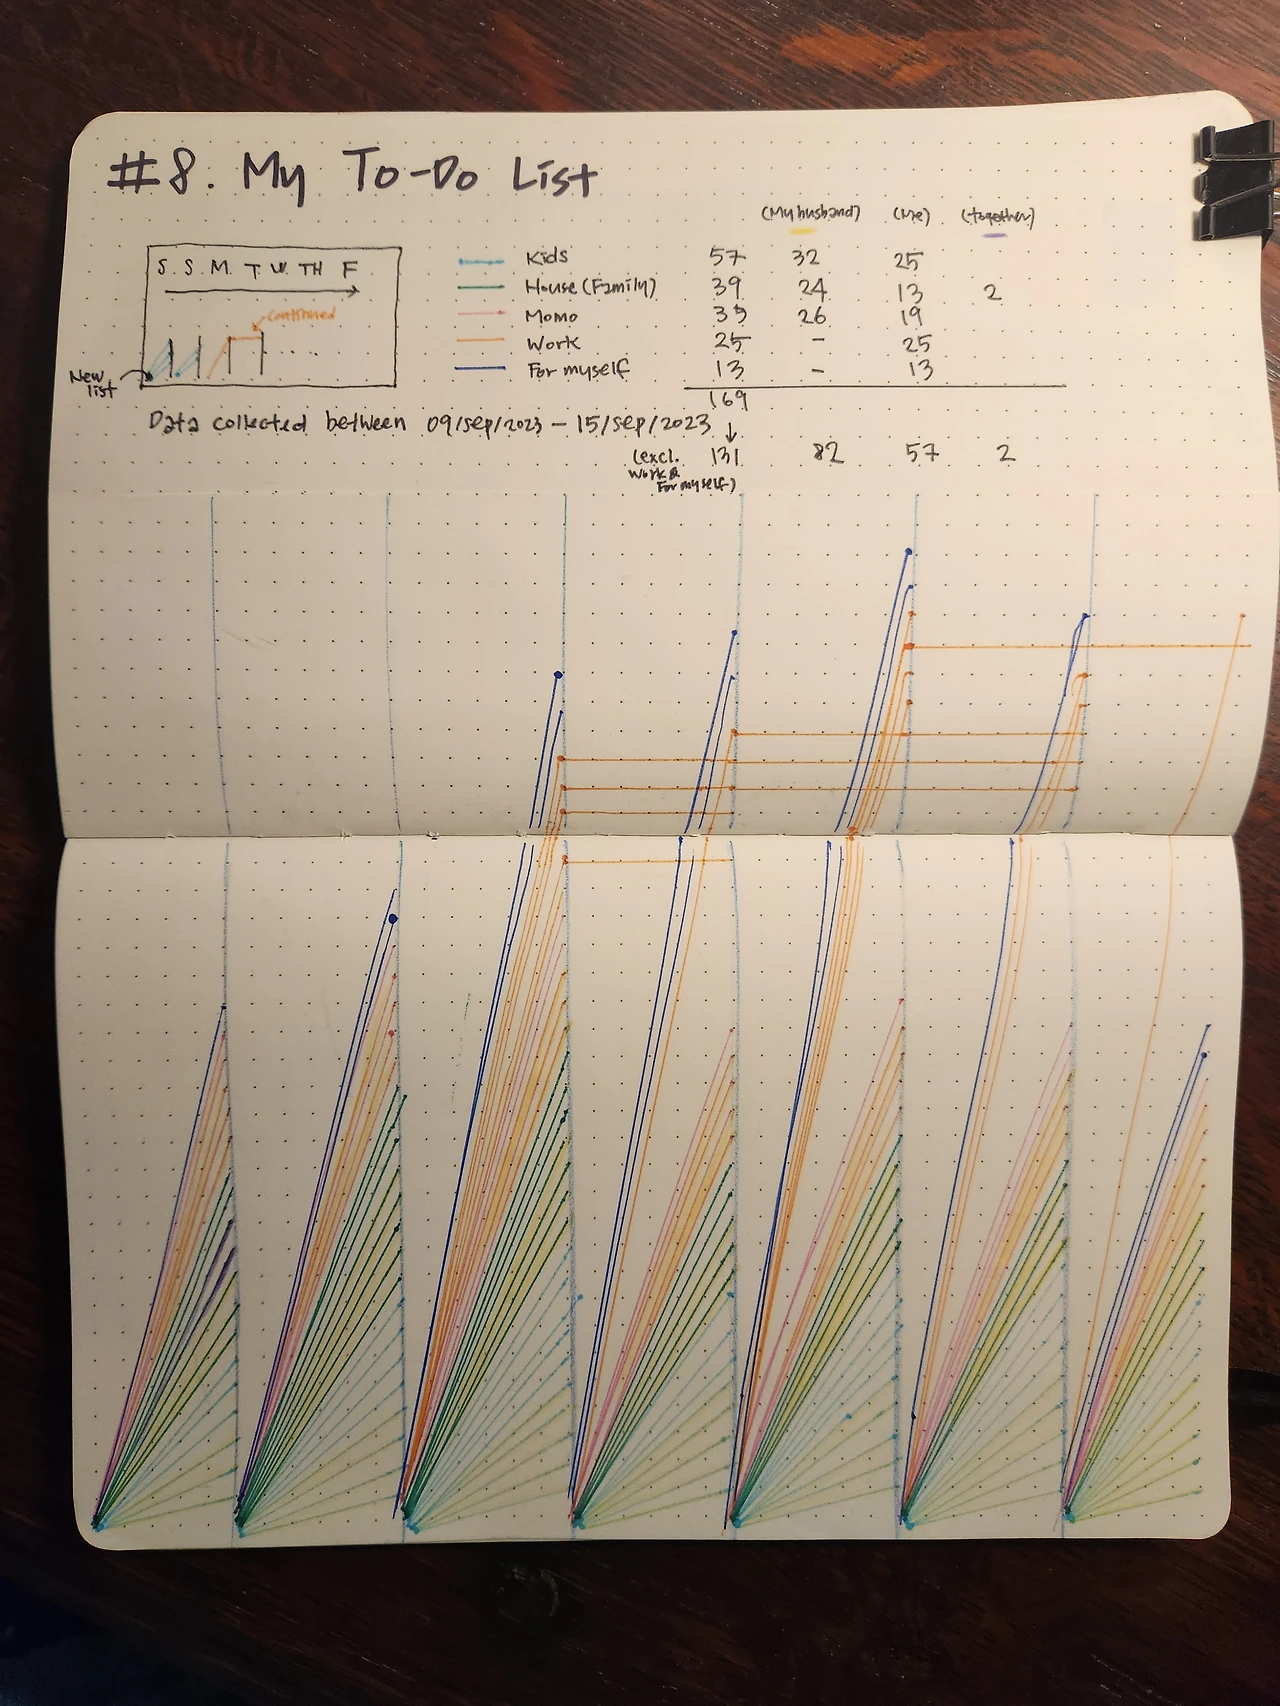 #8. My To-Do List
(My husband) (Me) (together)
S. S. M. T. W. TH F
Continued
New list
Kids 57 32 25
House (Family) 39 24 13 2
Momo 35 26 19
Work 25 - 25
For myself 13 - 13
169
Data collected between 09/sep/2023 - 15/sep/2023
(excl. Work & For myself) 131 82 57 2